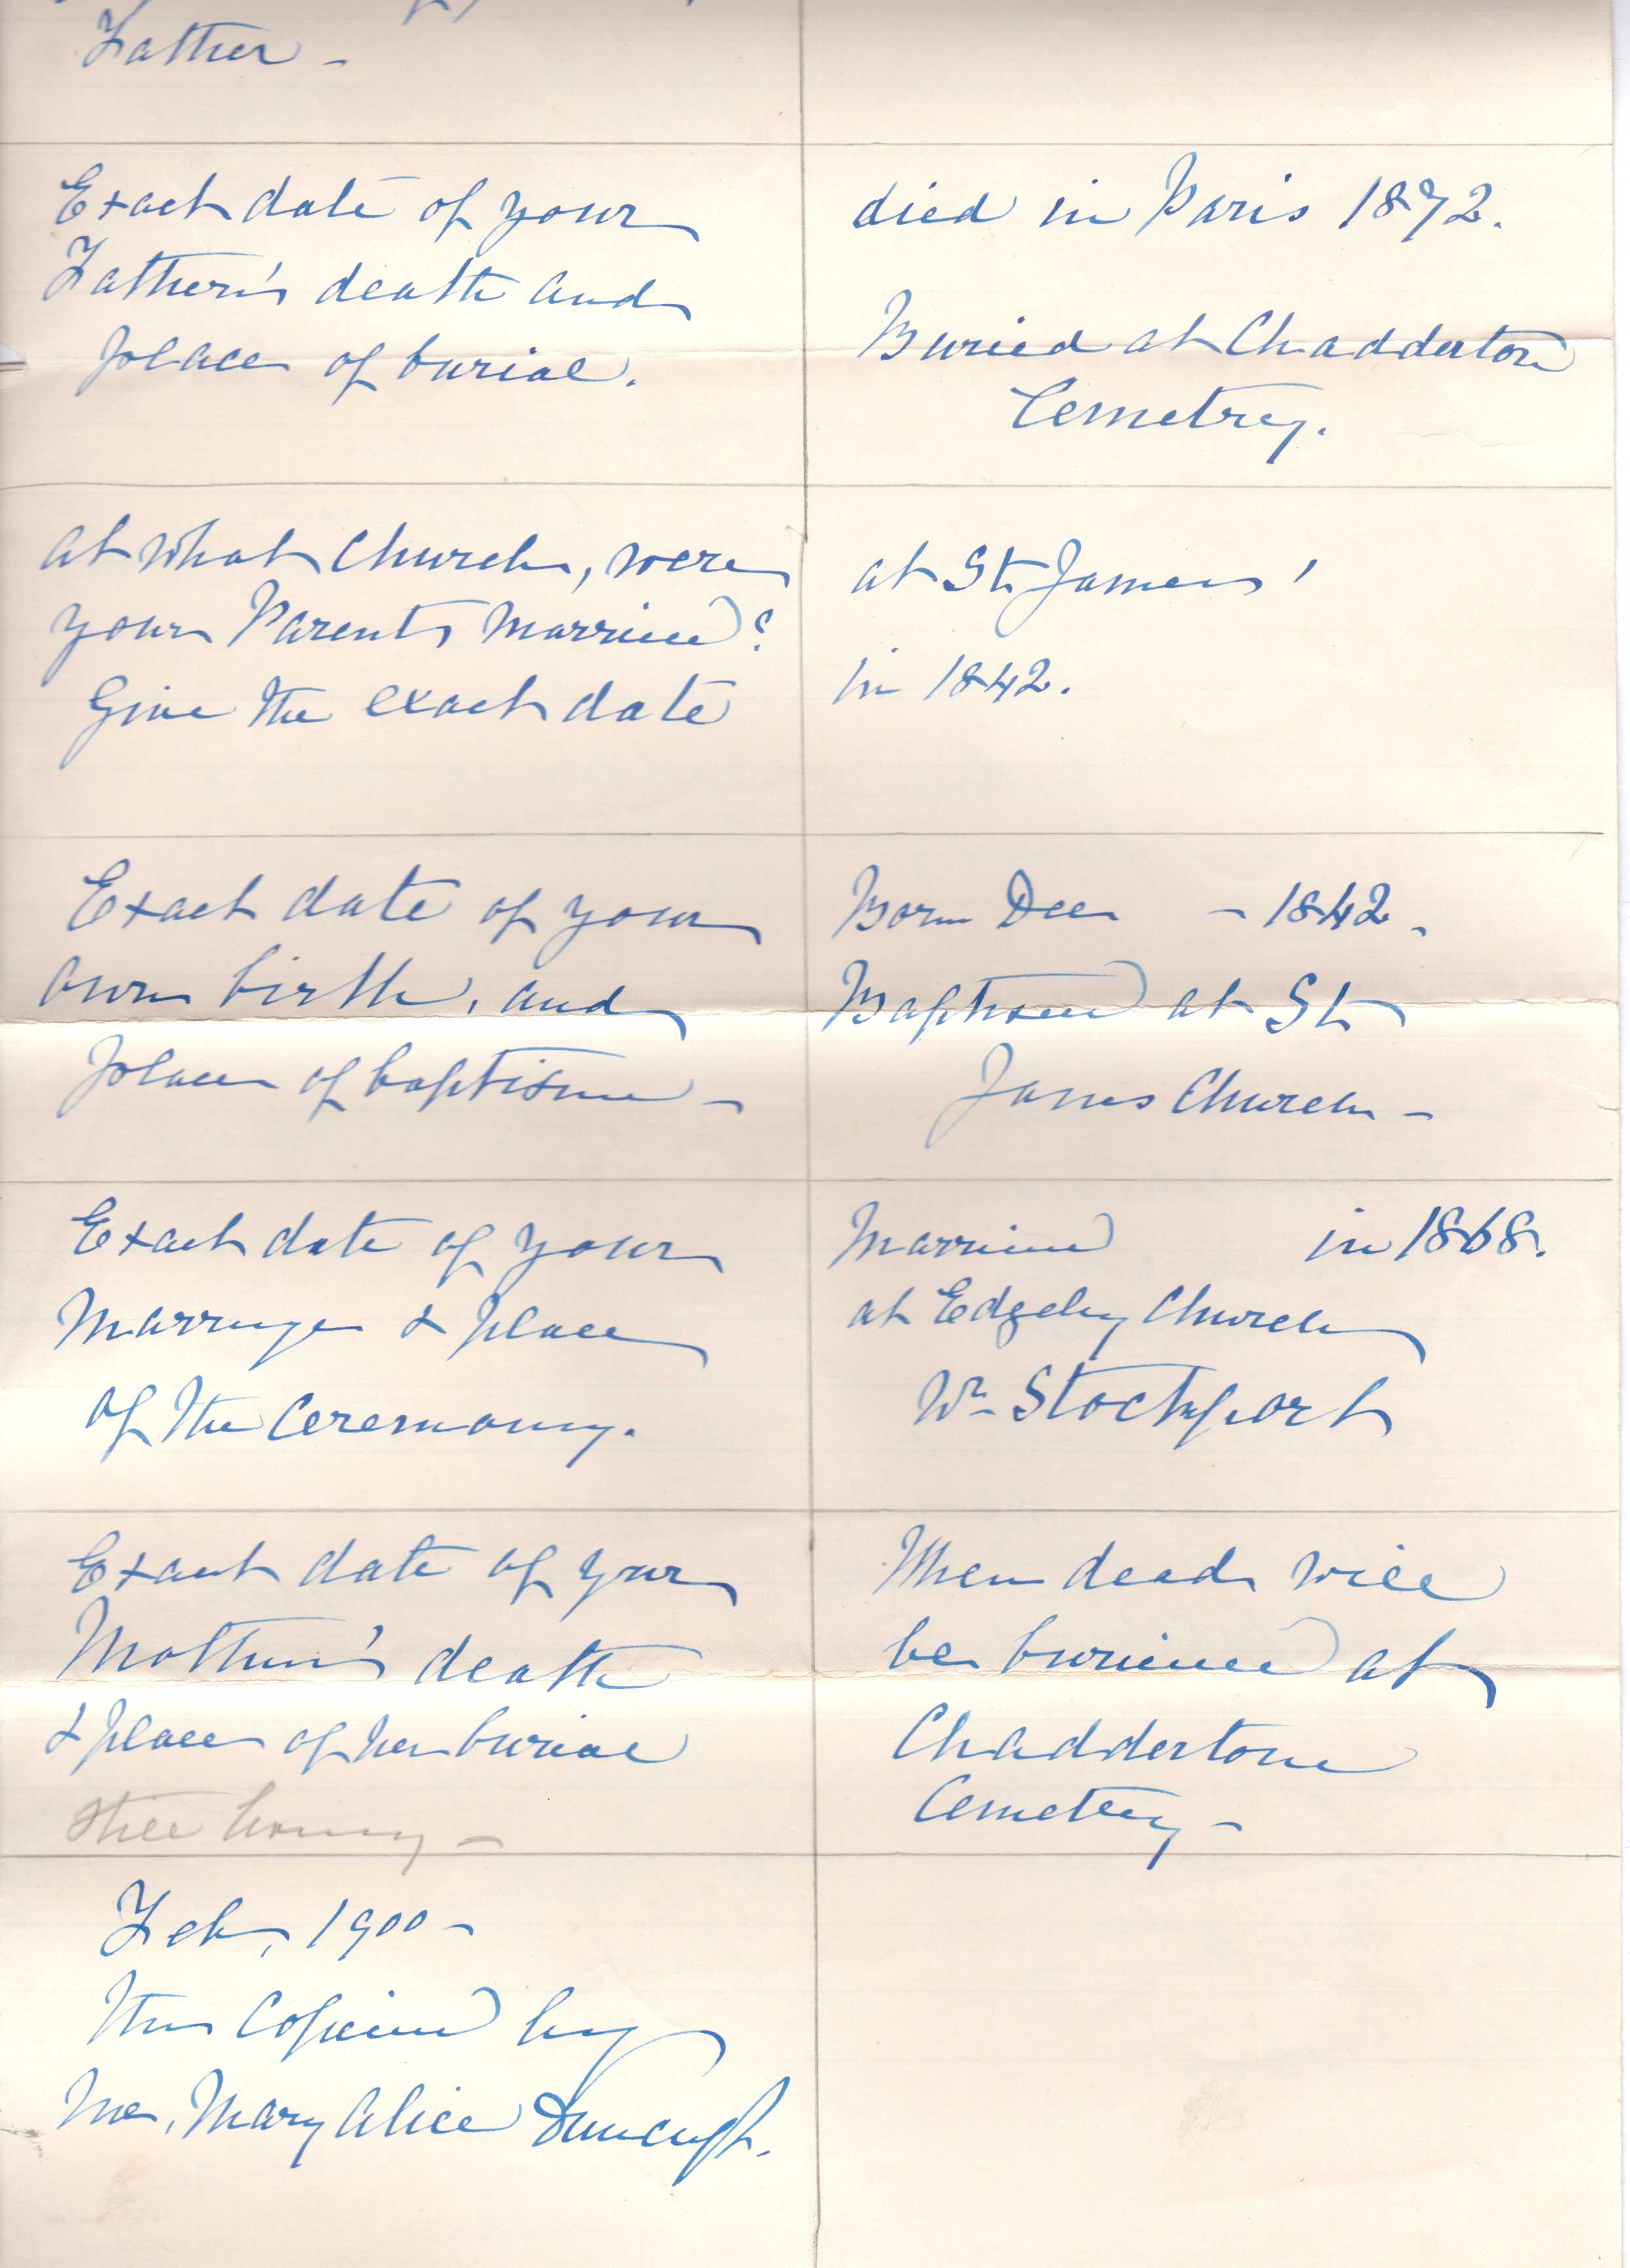 Father -
Exact date of your
Father's death and
place of burial.
died in Paris 1872.
Buried at Chadderton
Cemetry.
at what Church, were
your Parents Married?
Give the exact date
at St James'
in 1842.
Exact date of your
own birth, and
place of baptism -
Born Dec - 1842.
Baptised at St
James Church -
Exact date of your
Marriage & place
of the Ceremony.
Married in 1868.
at Edgeley Church
Nr Stockport
Exact date of your
Mother's death
& place of her burial
still living -
When dead will
be buried at
Chadderton
Cemetery -
Feb, 1900 -
This Copied by
Me, Mary Alice Duncuft.